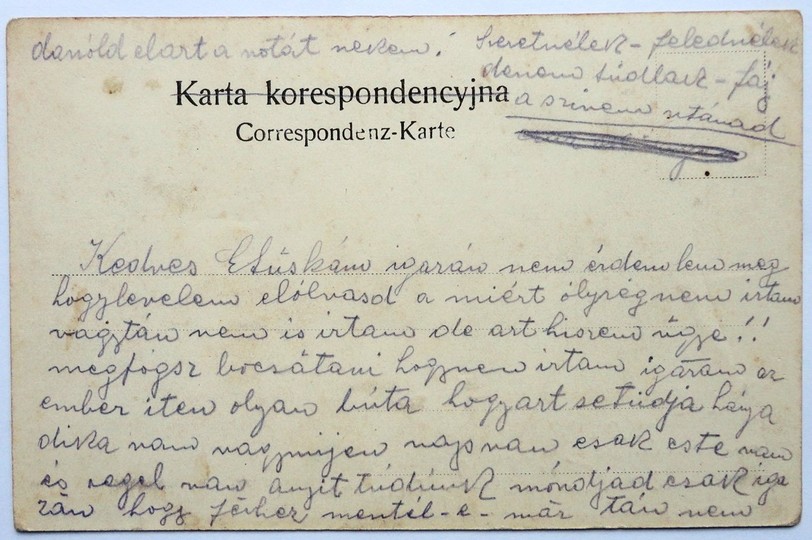 danóld elart a nótát nekem!
Szeretnélek - felednélek
denem túdlak - fáj
a szivem utánad
Karta korespondencyjna
Correspondenz-Karte
Kedves Etúskám igazán nem érdemlem meg
hogylevelem elólvasd a miért ólyrégnem irtam
vagytán nem is irtam de art hiszem úgye!!
megfógsz bocsátani hogynem irtam igazám az
ember iten olyan búta hogyart setúdja hánya
dika van vagymijen napvan csak este van
és regel van anyit túdúnk móndjad csak iga
zán hogy férhez mentél-e- már tán nem